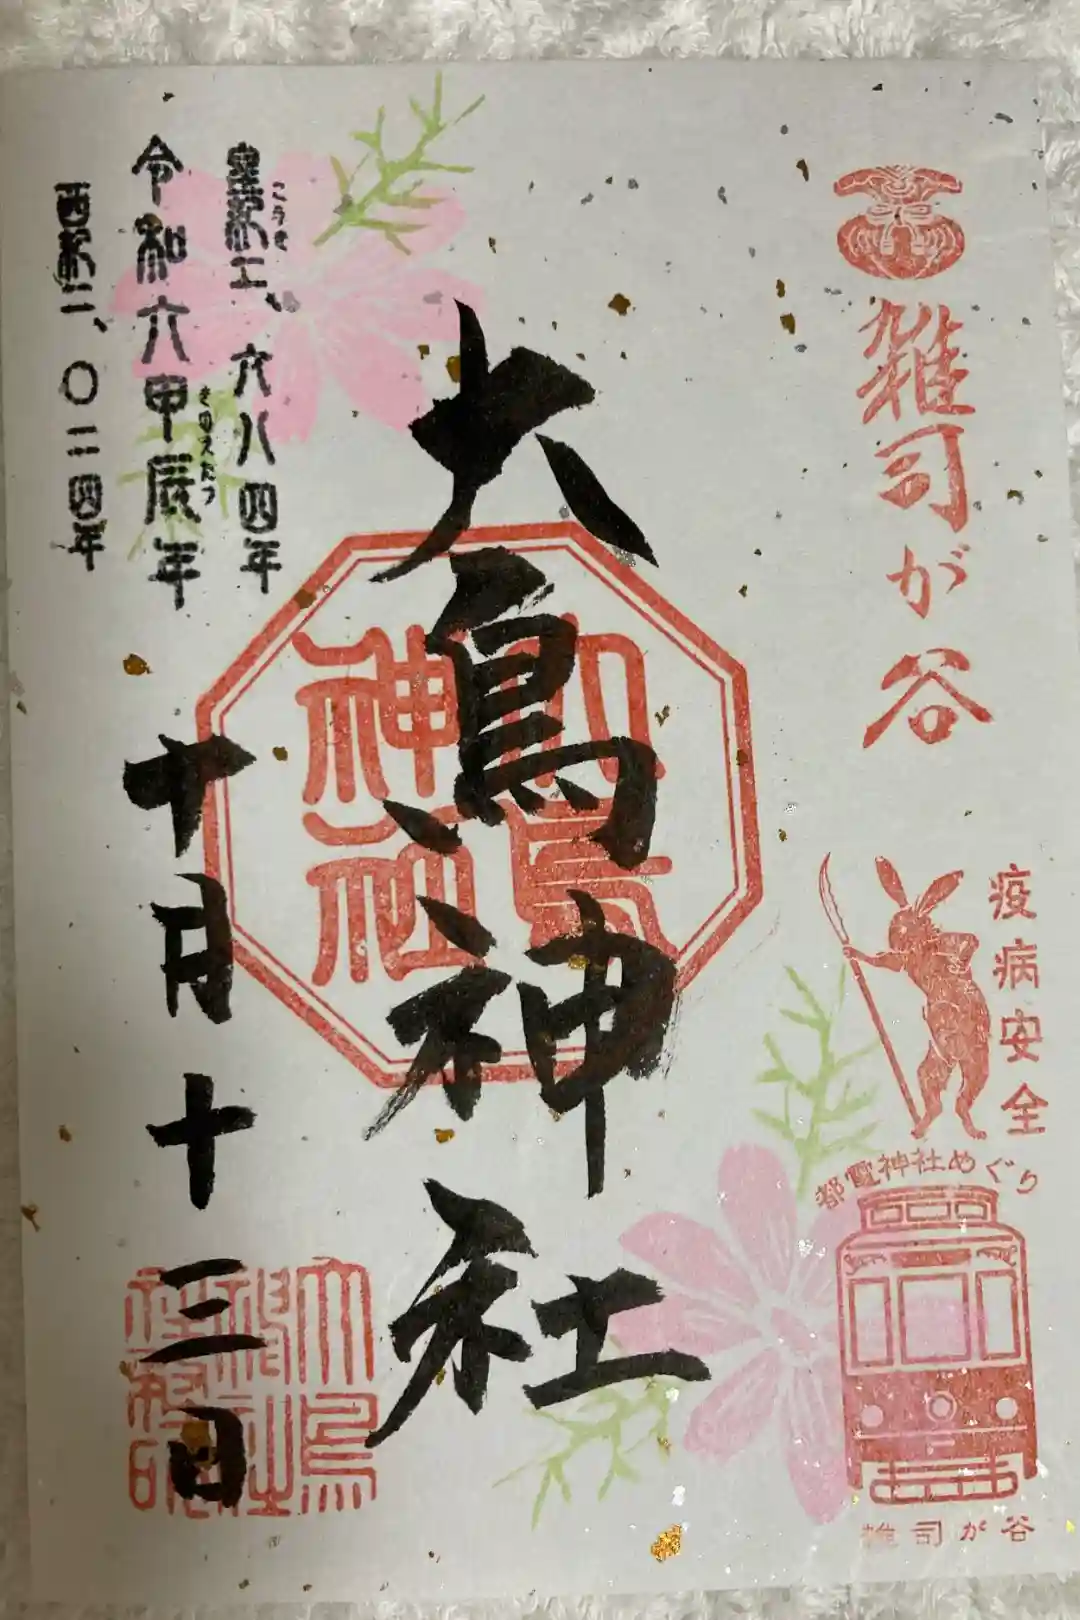 雑司が谷
疫病安全
都電神社めぐり
雑司が谷
大鳥神社
大鳥
神社
皇紀二、六八四年
こうき
令和六甲辰年
きのえたつ
西紀二、〇二四年
十月十三日
大鳥
神社